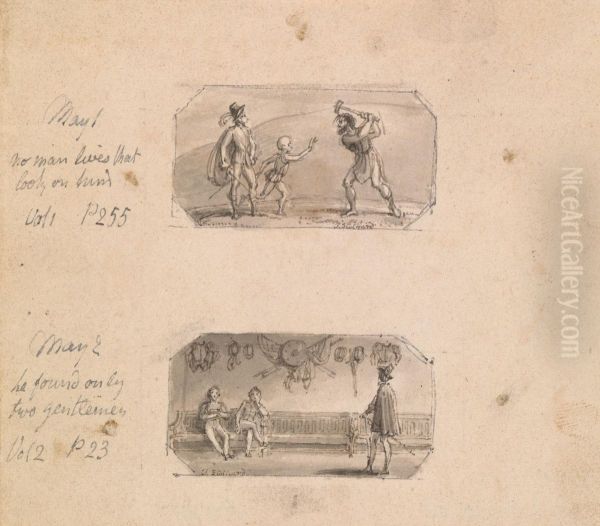 May 1
no man lives that
look on him
Vol 1 P 255
T. Stothard
May 2
he found only
two gentlemen
Vol 2 P 23
T. Stothard
NiceArtGallery.com